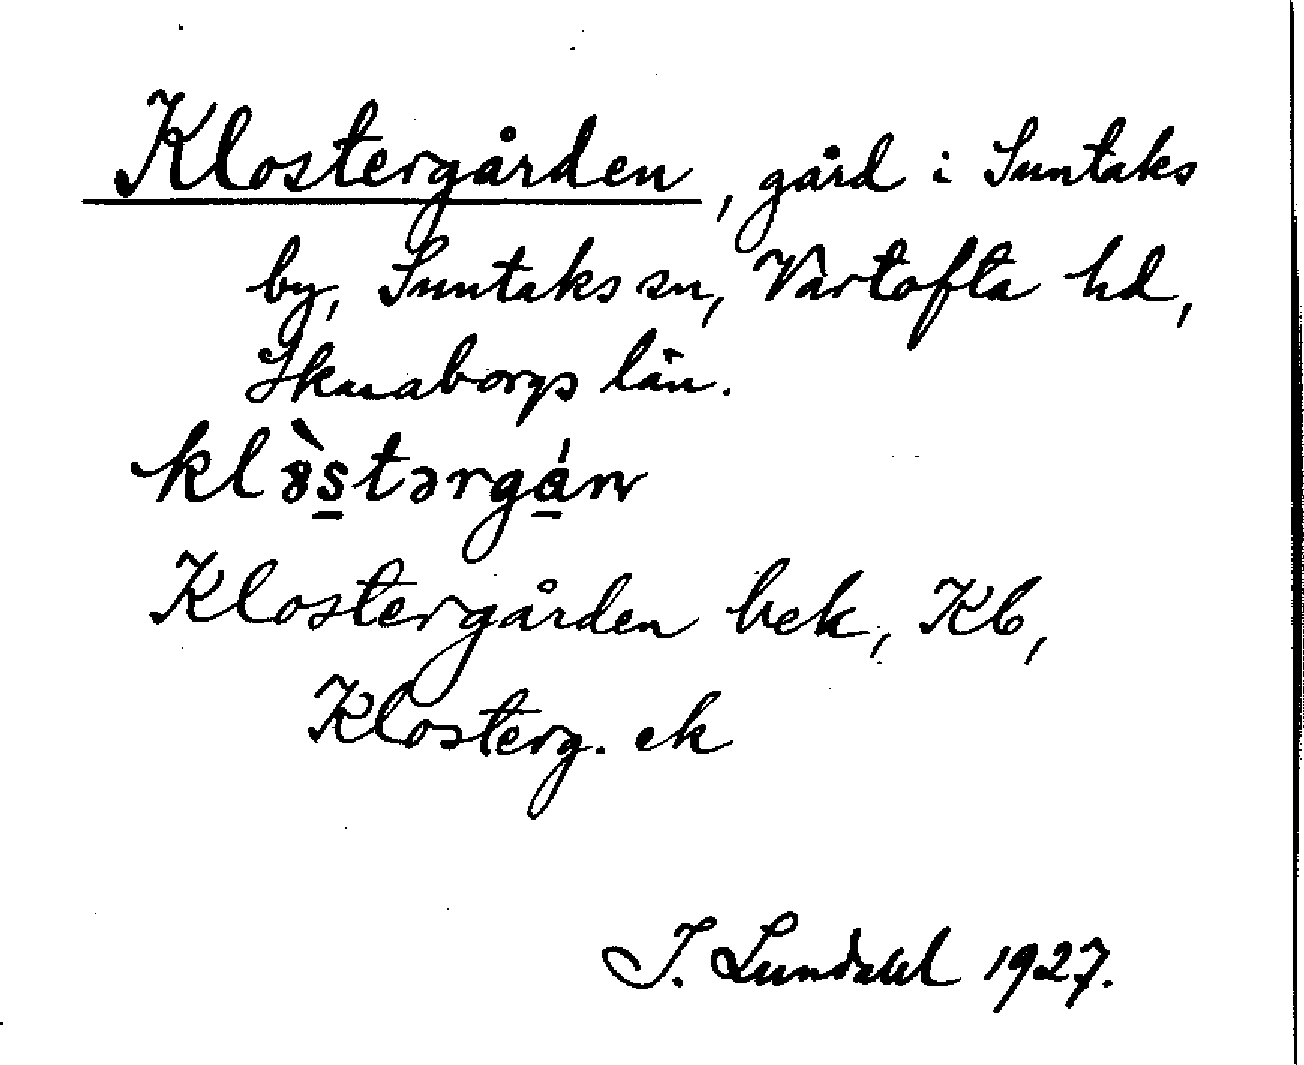 Klostergården, gård i Suntaks
by, Suntaks sn, Vartofta hd,
Skaraborgs län.
klòstərgán
Klostergården bek, Kb,
Klosterg. ek
I. Lundahl 1927.